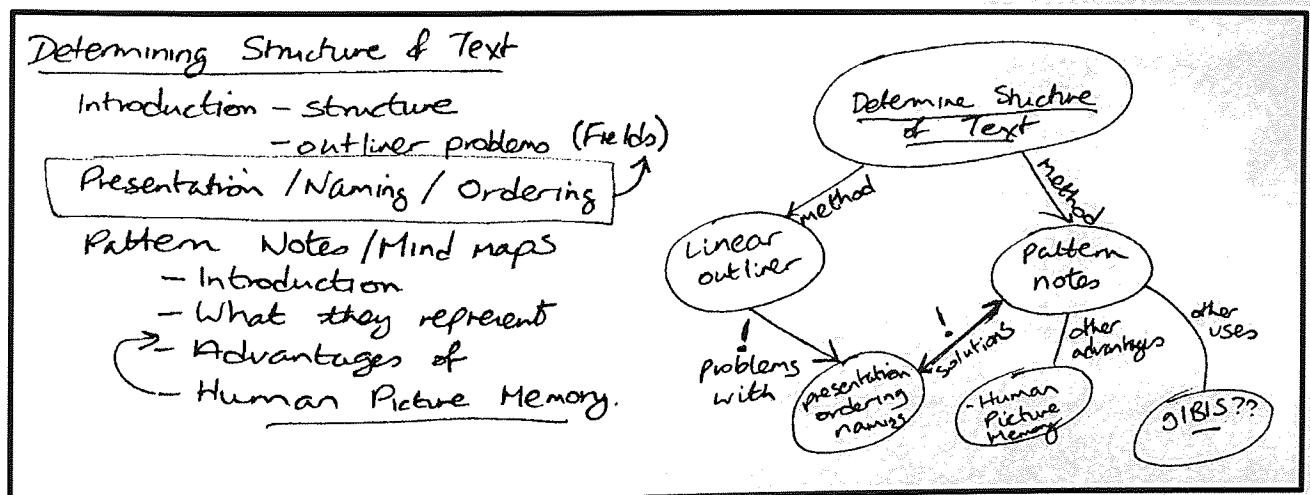 Determining Structure of Text
Introduction - structure
- outliner problems (Fields)
Presentation / Naming / Ordering
Pattern Notes / Mind maps
- Introduction
- What they represent
- Advantages of
- Human Picture Memory.
Determine Structure
of Text
method
method
Linear
outliner
Pattern
notes
!
problems
with
!
solutions
other
advantages
other
uses
presentation
ordering
naming
- Human
Picture
Memory
gIBIS??